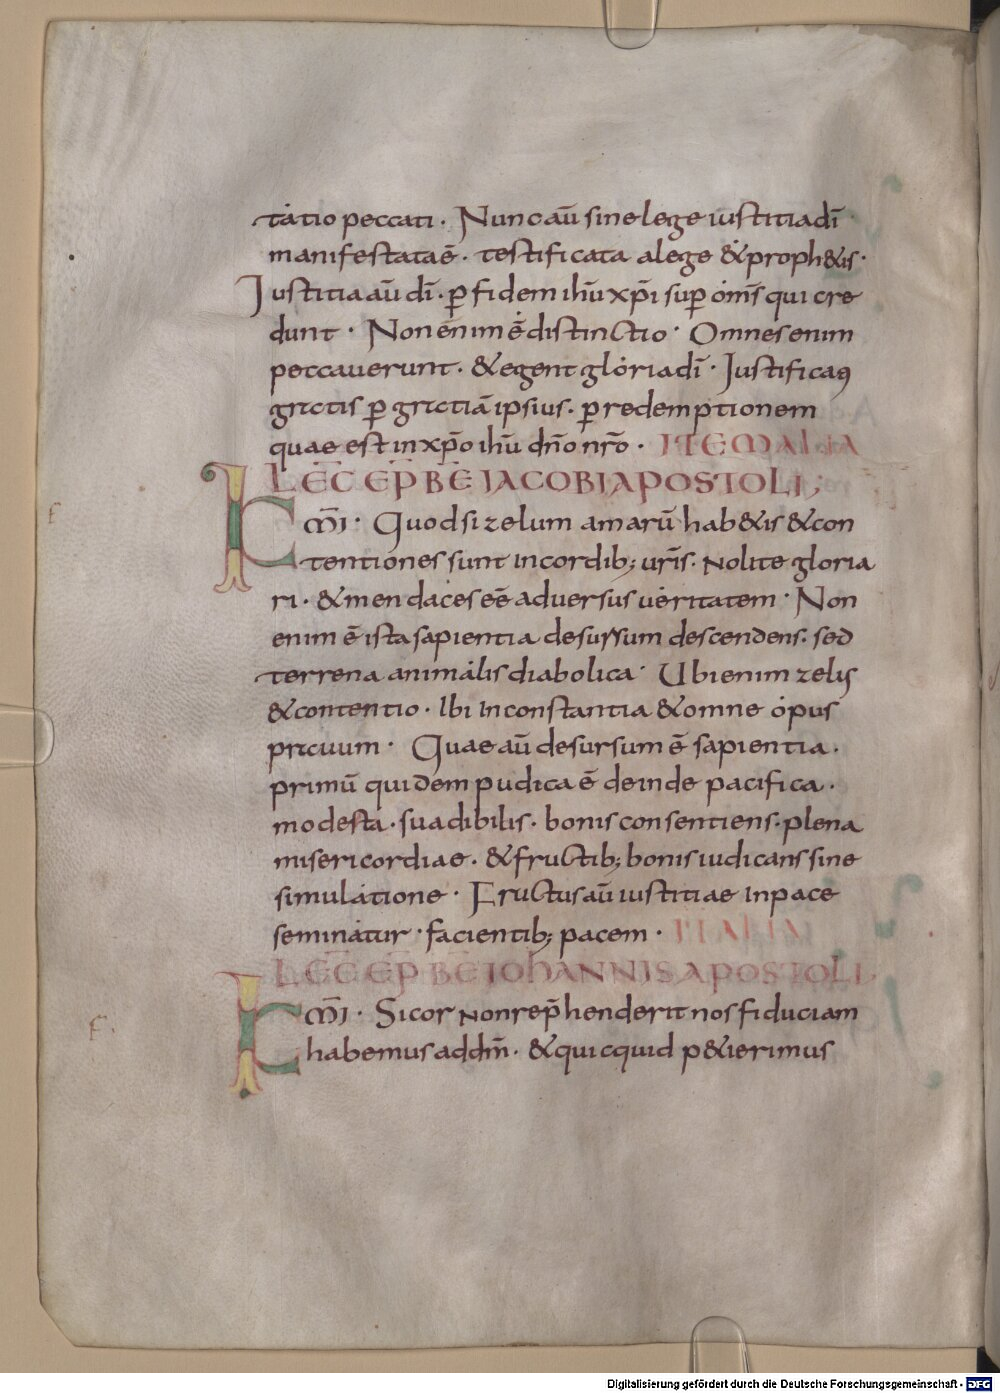 tatio peccati · Nunc aū sine lege iustitia dī
manifestata ē · testificata a lege & proph&is ·
Iustitia aū dī · ꝑ fidem ihū xp̄i suꝑ om̄s qui cre
dunt · Non enim ē distinctio · Omnes enim
peccauerunt · & egent gloria dī · Iustificaꝰ
gratis ꝑ gratiā ipsius · ꝑ redemptionem
quae est in xp̄o ihū dn̄o nr̄o · ITEM ALIA
LEC̄ EP̄ BĒ IACOBI APOSTOLI;
K̄mi · Quod si zelum amarū hab&is & con
tentiones sunt in cordib; ur̄is · Nolite gloria
ri · & mendaces eē aduersus ueritatem · Non
enim ē ista sapientia desursum descendens · sed
terrena animalis diabolica · Ubi enim zelus
& contentio · Ibi inconstantia & omne opus
prauum · Quae aū desursum ē sapientia ·
primū quidem pudica ē deinde pacifica ·
modesta · suadibilis · bonis consentiens · plena
misericordiae · & fructib; bonis iudicans sine
simulatione · Fructus aū iustitiae in pace
seminatur · facientib; pacem · IT ALIA
LEC̄ EP̄ BĒ IOHANNIS APOSTOLI
K̄mi · Si cor non rep̄henderit nos fiduciam
habemus ad dm̄ · & quicquid p&ierimus
F
F.
Digitalisierung gefördert durch die Deutsche Forschungsgemeinschaft - DFG